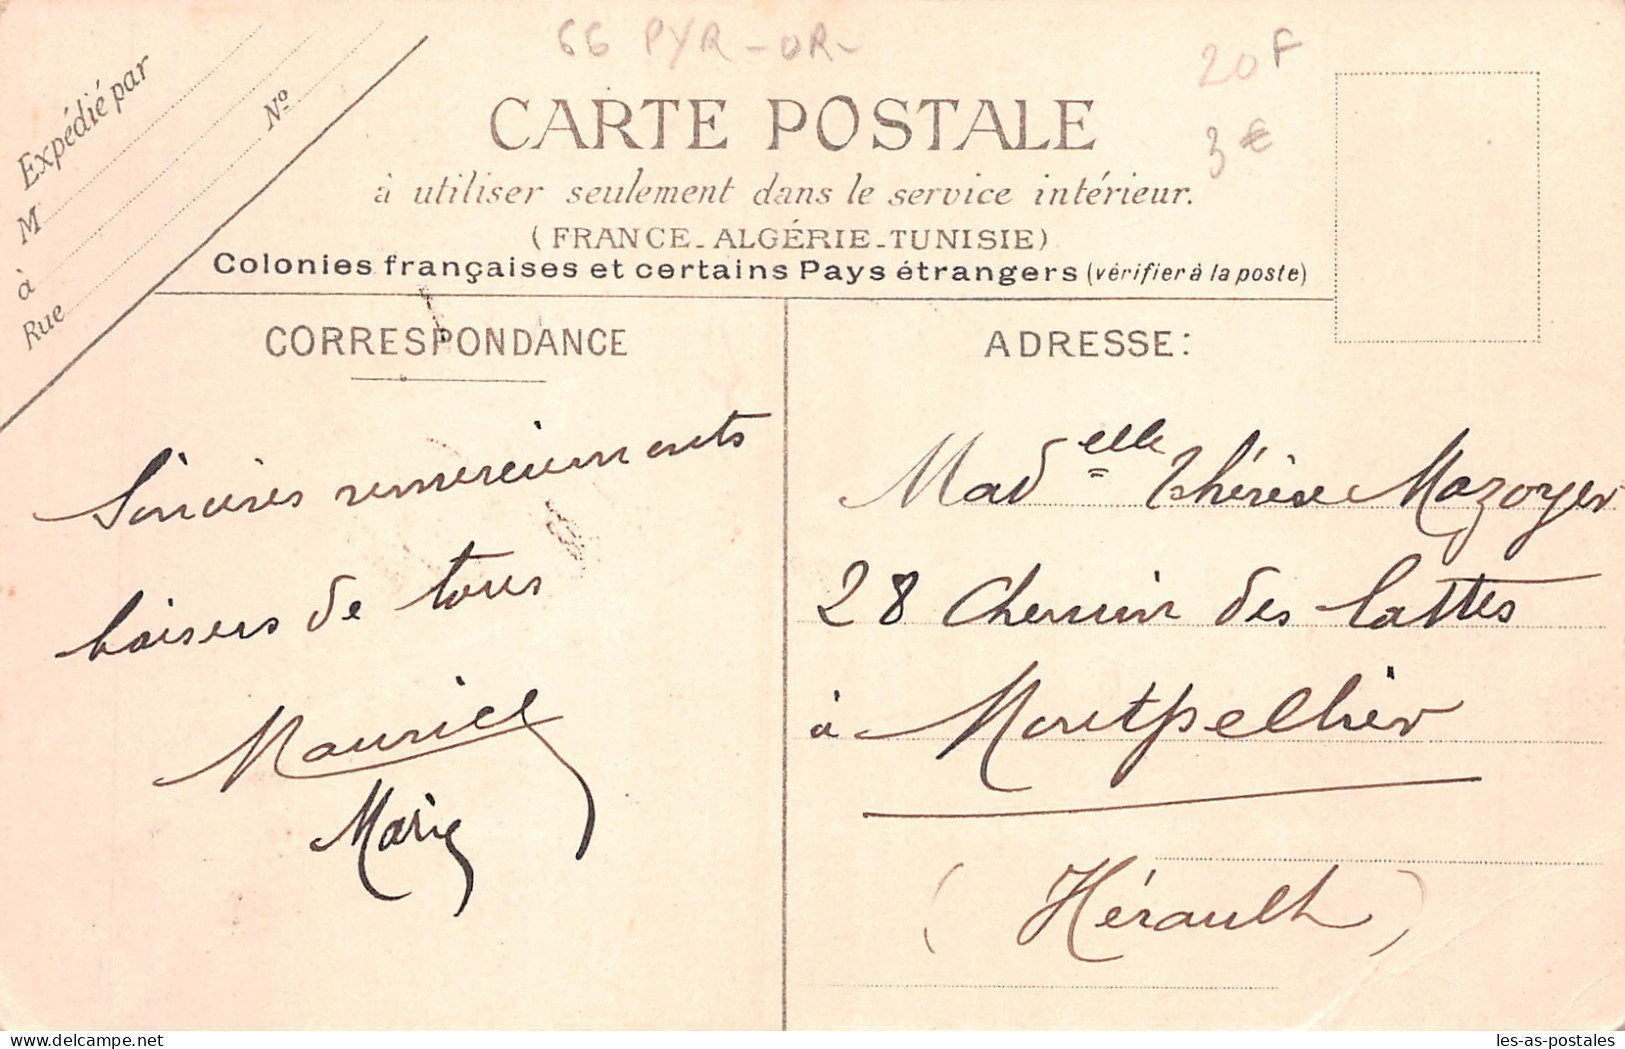 66 PYR-OR-
20F
3€
Expédié par
M
à
Rue
Nº
CARTE POSTALE
à utiliser seulement dans le service intérieur.
(FRANCE-ALGÉRIE-TUNISIE)
Colonies françaises et certains Pays étrangers (vérifier à la poste)
CORRESPONDANCE
Sincères remerciements
baisers de tous
Maurice
Marie
ADRESSE:
Madelle Thérèse Mazoyer
28 Chemin des Lattes
à Montpellier
(Hérault)
delcampe.net
les-as-postales